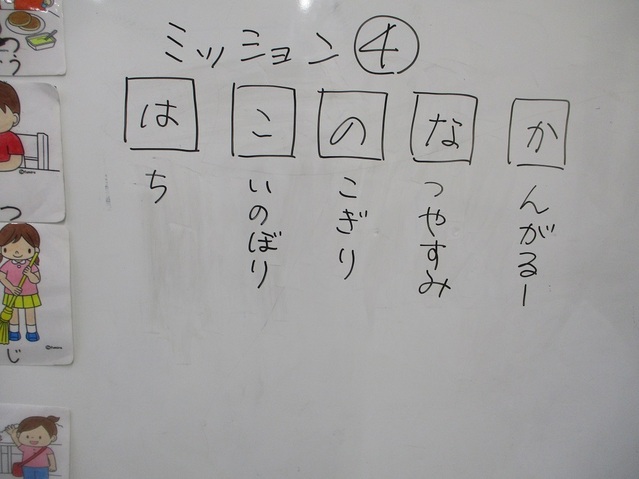 ミッション④
はこのなか
はち
こいのぼり
のこぎり
なつやすみ
かんがるー
つ
じ